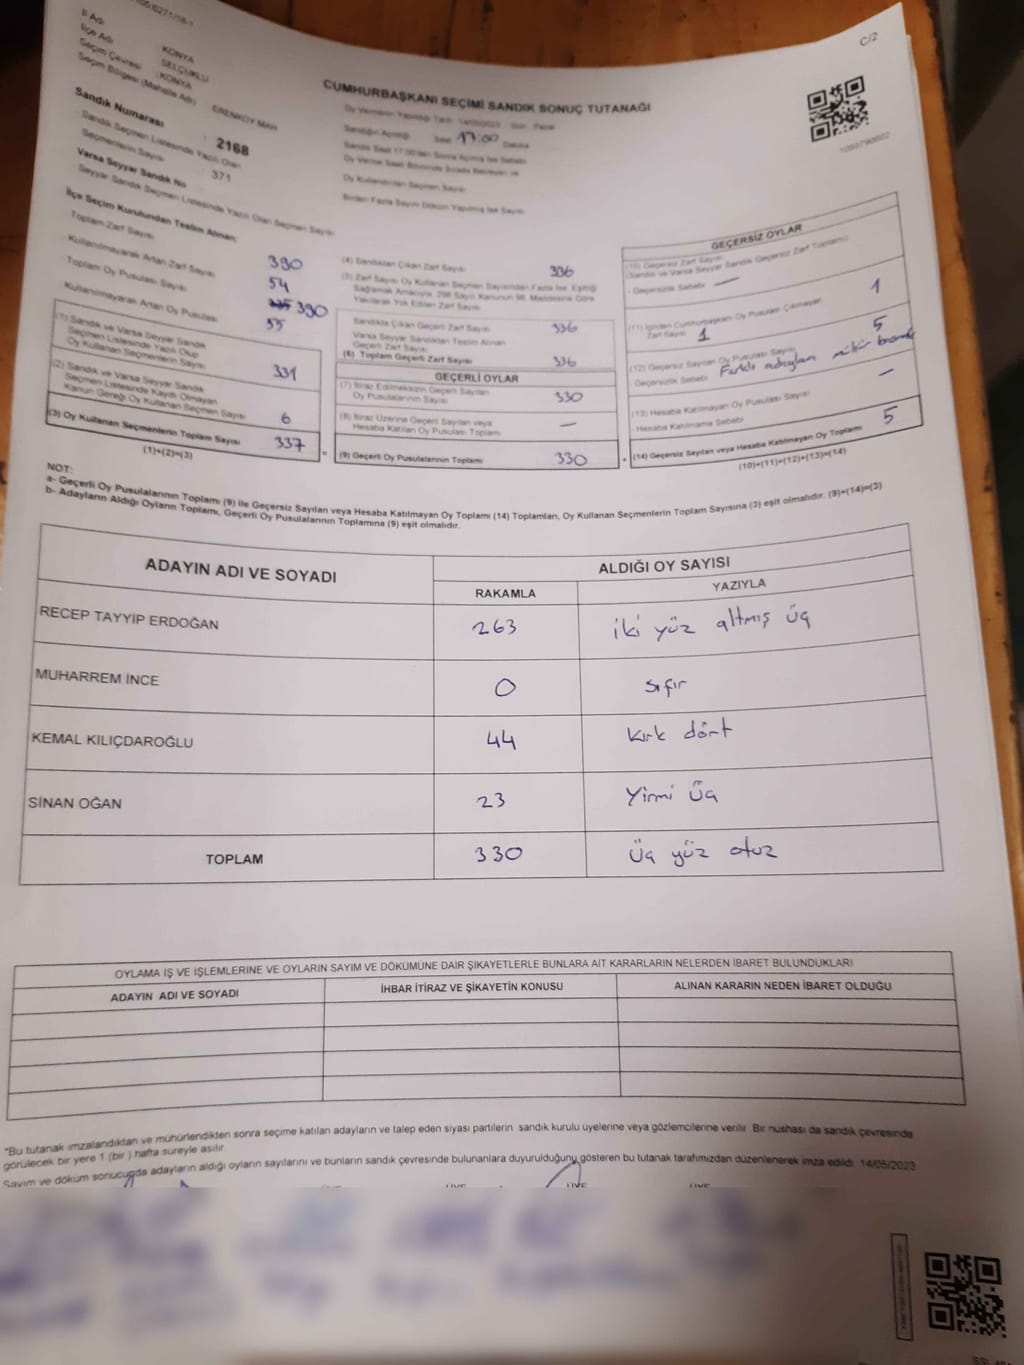 C/2
İl Adı
İlçe Adı
Seçim Çevresi
Seçim Bölgesi (Mahalle Adı)
KONYA
SELÇUKLU
KONYA
ERENKÖY MAH
Sandık Numarası : 2168
Sandık Seçmen Listesinde Yazılı Olan
Seçmenlerin Sayısı : 371
Varsa Seyyar Sandık No
Seyyar Sandık Seçmen Listesinde Yazılı Olan Seçmen Sayısı
CUMHURBAŞKANI SEÇİMİ SANDIK SONUÇ TUTANAĞI
Sandığın Açıldığı Saat 17:00 Dakika
Oy Kullandırılan Seçmen Sayısı
Birden Fazla Sayım Döküm Yapılmış İse Sayısı
İlçe Seçim Kurulundan Teslim Alınan:
Toplam Zarf Sayısı 390
Kullanılmayarak Artan Zarf Sayısı 54
Toplam Oy Pusulası Sayısı 390
Kullanılmayarak Artan Oy Pusulası 55
(1) Sandık ve Varsa Seyyar Sandık
Seçmen Listesinde Yazılı Olup
Oy Kullanan Seçmenlerin Sayısı 331
(2) Sandık ve Varsa Seyyar Sandık
Seçmen Listesinde Kaydı Olmayan
Kanun Gereği Oy Kullanan Seçmen Sayısı 6
(3) Oy Kullanan Seçmenlerin Toplam Sayısı 337
(1)+(2)=(3)
(4) Sandıktan Çıkan Zarf Sayısı 336
(5) Zarf Sayısı Oy Kullanan Seçmen Sayısından Fazla İse, Eşitliği
Sağlamak Amacıyla, 298 Sayılı Kanunun 98. Maddesine Göre
Yakılarak Yok Edilen Zarf Sayısı
Sandıkta Çıkan Geçerli Zarf Sayısı 336
Varsa Seyyar Sandıktan Teslim Alınan
Geçerli Zarf Sayısı
(6) Toplam Geçerli Zarf Sayısı 336
GEÇERLİ OYLAR
(7) İtiraz Edilmeksizin Geçerli Sayılan
Oy Pusulalarının Sayısı 330
(8) İtiraz Üzerine Geçerli Sayılan veya
Hesaba Katılan Oy Pusulası Toplamı —
(9) Geçerli Oy Pusulalarının Toplamı 330
GEÇERSİZ OYLAR
(10) Geçersiz Zarf Sayısı
(Sandık ve Varsa Seyyar Sandık Geçersiz Zarf Toplamı)
- Geçersizlik Sebebi —
(11) İçinden Cumhurbaşkanı Oy Pusulası Çıkmayan
Zarf Sayısı 1 1
(12) Geçersiz Sayılan Oy Pusulası Sayısı 5
- Geçersizlik Sebebi Farklı mühür
(13) Hesaba Katılmayan Oy Pusulası Sayısı —
- Hesaba Katılmama Sebebi
(14) Geçersiz Sayılan veya Hesaba Katılmayan Oy Toplamı 5
(10)+(11)+(12)+(13)=(14)
NOT:
a- Geçerli Oy Pusulalarının Toplamı (9) ile Geçersiz Sayılan veya Hesaba Katılmayan Oy Toplamı (14) Toplamları, Oy Kullanan Seçmenlerin Toplam Sayısına (3) eşit olmalıdır. (9)+(14)=(3)
b- Adayların Aldığı Oyların Toplamı, Geçerli Oy Pusulalarının Toplamına (9) eşit olmalıdır.
ADAYIN ADI VE SOYADI
ALDIĞI OY SAYISI
RAKAMLA YAZIYLA
RECEP TAYYİP ERDOĞAN 263 iki yüz altmış üç
MUHARREM İNCE 0 sıfır
KEMAL KILIÇDAROĞLU 44 kırk dört
SİNAN OĞAN 23 Yirmi üç
TOPLAM 330 Üç yüz otuz
OYLAMA İŞ VE İŞLEMLERİNE VE OYLARIN SAYIM VE DÖKÜMÜNE DAİR ŞİKAYETLERLE BUNLARA AİT KARARLARIN NELERDEN İBARET BULUNDUKLARI
ADAYIN ADI VE SOYADI
İHBAR İTİRAZ VE ŞİKAYETİN KONUSU
ALINAN KARARIN NEDEN İBARET OLDUĞU
"Bu tutanak imzalandıktan ve mühürlendikten sonra seçime katılan adayların ve talep eden siyasi partilerin sandık kurulu üyelerine veya gözlemcilerine verilir. Bir nüshası da sandık çevresinde
görülecek bir yere 1 (bir ) hafta süreyle asılır.
Sayım ve döküm sonucunda adayların aldığı oyların sayılarını ve bunların sandık çevresinde bulunanlara duyurulduğunu gösteren bu tutanak tarafımızdan düzenlenerek imza edildi. 14/05/2023